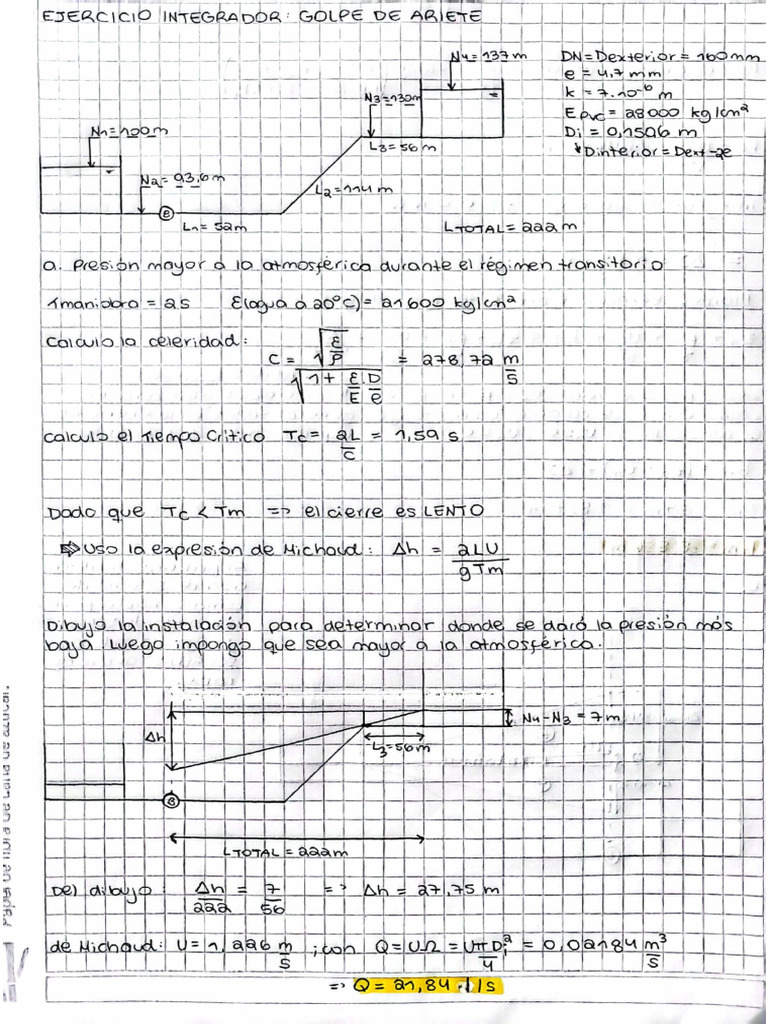 EJERCICIO INTEGRADOR: GOLPE DE ARIETE
N4 = 137 m
DN = Dexterior = 160 mm
e = 4,7 mm
N3 = 130 m
k = 7.10⁻⁶ m
E pvc = 28000 kg/cm²
N1 = 100 m
L3 = 56 m
Di = 0,1506 m
Dinterior = Dext - 2e
N2 = 93,6 m
L2 = 114 m
B
L1 = 52 m
LTOTAL = 222 m
a. Presión mayor a la atmosférica durante el régimen transitorio
Tmaniobra = 2s E(agua a 20°C) = 21600 kg/cm²
Calculo la celeridad:
C = √(ε/ρ) / √(1 + ε/E D/e) = 278,72 m/s
Calculo el Tiempo Crítico Tc = 2L/C = 1,59 s
Dado que Tc < Tm => el cierre es LENTO
=> Uso la expresión de Michaud: Δh = 2LU/gTm
Dibujo la instalación para determinar donde se dará la presión más
baja luego impongo que sea mayor a la atmosférica.
N4 - N3 = 7 m
Δh
L3 = 56m
B
LTOTAL = 222m
Del dibujo Δh/222 = 7/56 => Δh = 27,75 m
de Michaud: U = 1,226 m/s ; con Q = UΩ = UπDi²/4 = 0,02184 m³/s
=> Q = 21,84 l/s